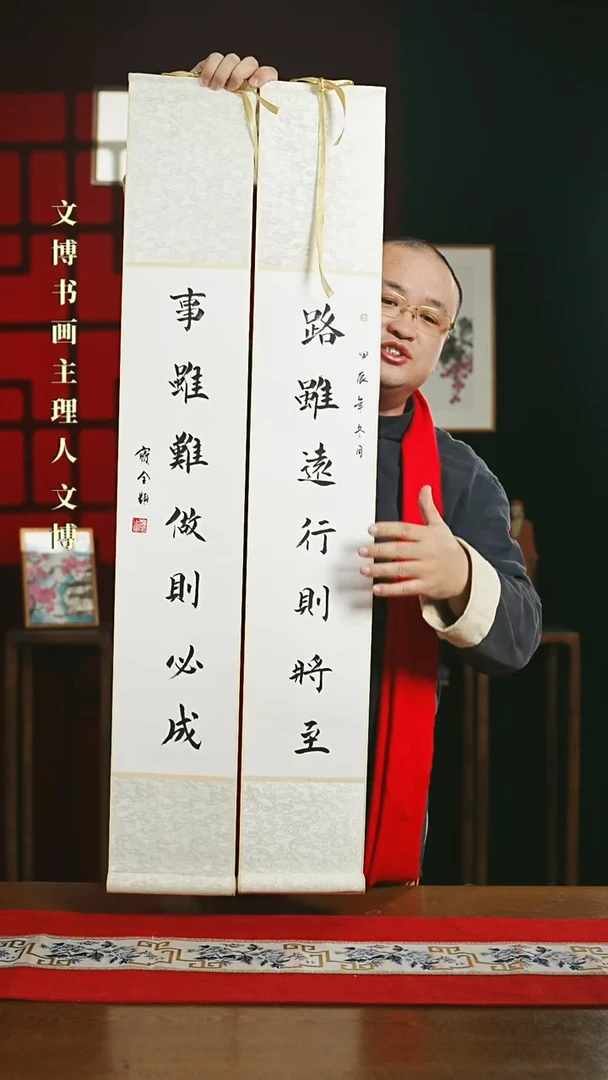 路雖遠行則將至
甲辰年冬月
事雖難做則必成
文博书画主理人文博